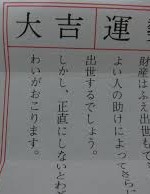 大吉
運
財産はふえ出世も
よい人の助けによってさらに
出世するでしょう。
しかし、正直にしないとわざ
わいがおこります。